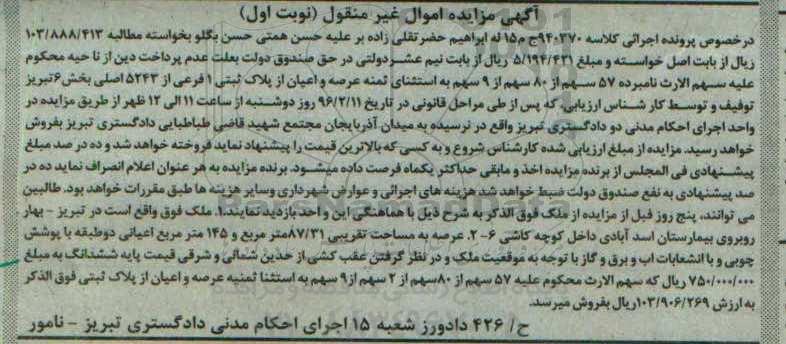 آگهی مزایده اموال غیر منقول (نوبت اول)
درخصوص پرونده اجرائی کلاسه ۹۴۰۳۷۰ج م۱۵ له ابراهیم حضرتقلی زاده بر علیه حسن همتی حسن بگلو بخواسته مطالبه ۱۰۳/۸۸۸/۴۱۳
ریال از بابت اصل خواسته و مبلغ ۵/۱۹۴/۴۲۱ ریال از بابت نیم عشردولتی در حق صندوق دولت بعلت عدم پرداخت دین از نا حیه محکوم
علیه سهم الارث نامبرده ۵۷ سهم از ۸۰ سهم از ۹ سهم به استثنای ثمنه عرصه و اعیان از پلاک ثبتی ۱ فرعی از ۵۲۴۳ اصلی بخش ۶تبریز
توقیف و توسط کار شناس ارزیابی، که پس از طی مراحل قانونی در تاریخ ۹۶/۲/۱۱ روز دوشنبه از ساعت ۱۱ الی ۱۲ ظهر از طریق مزایده در
واحد اجرای احکام مدنی دو دادگستری تبریز واقع در نرسیده به میدان آذربایجان مجتمع شهید قاضی طباطبایی دادگستری تبریز بفروش
خواهد رسید. مزایده از مبلغ ارزیابی شده کارشناس شروع و به کسی که بالاترین قیمت را پیشنهاد نماید فروخته خواهد شد و ده در صد مبلغ
پیشنهادی فی المجلس از برنده مزایده اخذ و مابقی حداکثر یکماه فرصت داده میشود. برنده مزایده به هر عنوان اعلام انصراف نماید ده در
صد پیشنهادی به نفع صندوق دولت ضبط خواهد شد هزینه های اجرائی و عوارض شهرداری وسایر هزینه ها طبق مقررات خواهد بود. طالبین
می توانند، پنج روز قبل از مزایده از ملک فوق الذکر به شرح ذیل با هماهنگی این و احد بازدید نمایند.۱. ملک فوق واقع است در تبریز - بهار
روبروی بیمارستان اسد آبادی داخل کوچه کاشی ۶- ۲. عرصه به مساحت تقریبی ۸۷/۳۱متر مربع و ۱۴۵ متر مربع اعیانی دوطبقه با پوشش
چوبی و با انشعابات اب و برق و گاز با توجه به موقعیت ملک و در نظر گرفتن عقب کشی از حدین شمالی و شرقی قیمت پایه ششدانگ به مبلغ
۷۵۰/۰۰۰/۰۰۰ ریال که سهم الارث محکوم علیه ۵۷ سهم از ۸۰سهم از ۲ سهم از۹ سهم به استثنا ثمنیه عرصه و اعیان از پلاک ثبتی فوق الذکر
به ارزش ۱۰۳/۹۰۶/۲۶۹ریال بفروش میرسد.
ح/ ۴۲۶ دادورز شعبه ۱۵ اجرای احکام مدنی دادگستری تبریز - نامور
ParsNamadData